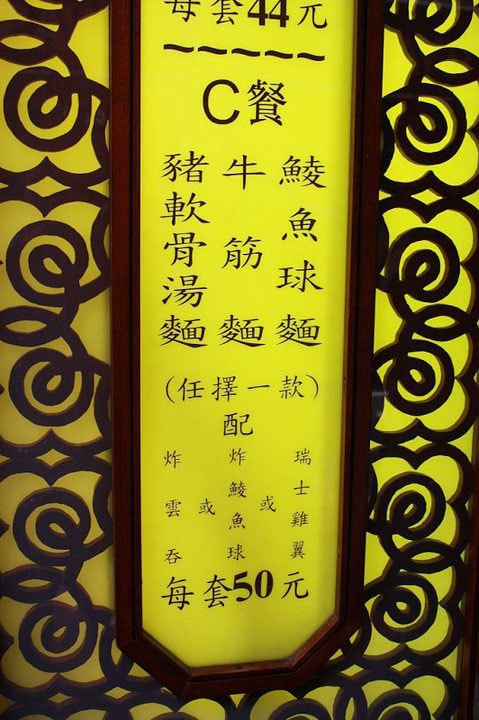 每套44元
~~~~~
C餐
鯪魚球麵
牛筋麵
豬軟骨湯麵
(任擇一款)
配
瑞士雞翼
或
炸鯪魚球
或
炸雲吞
每套50元